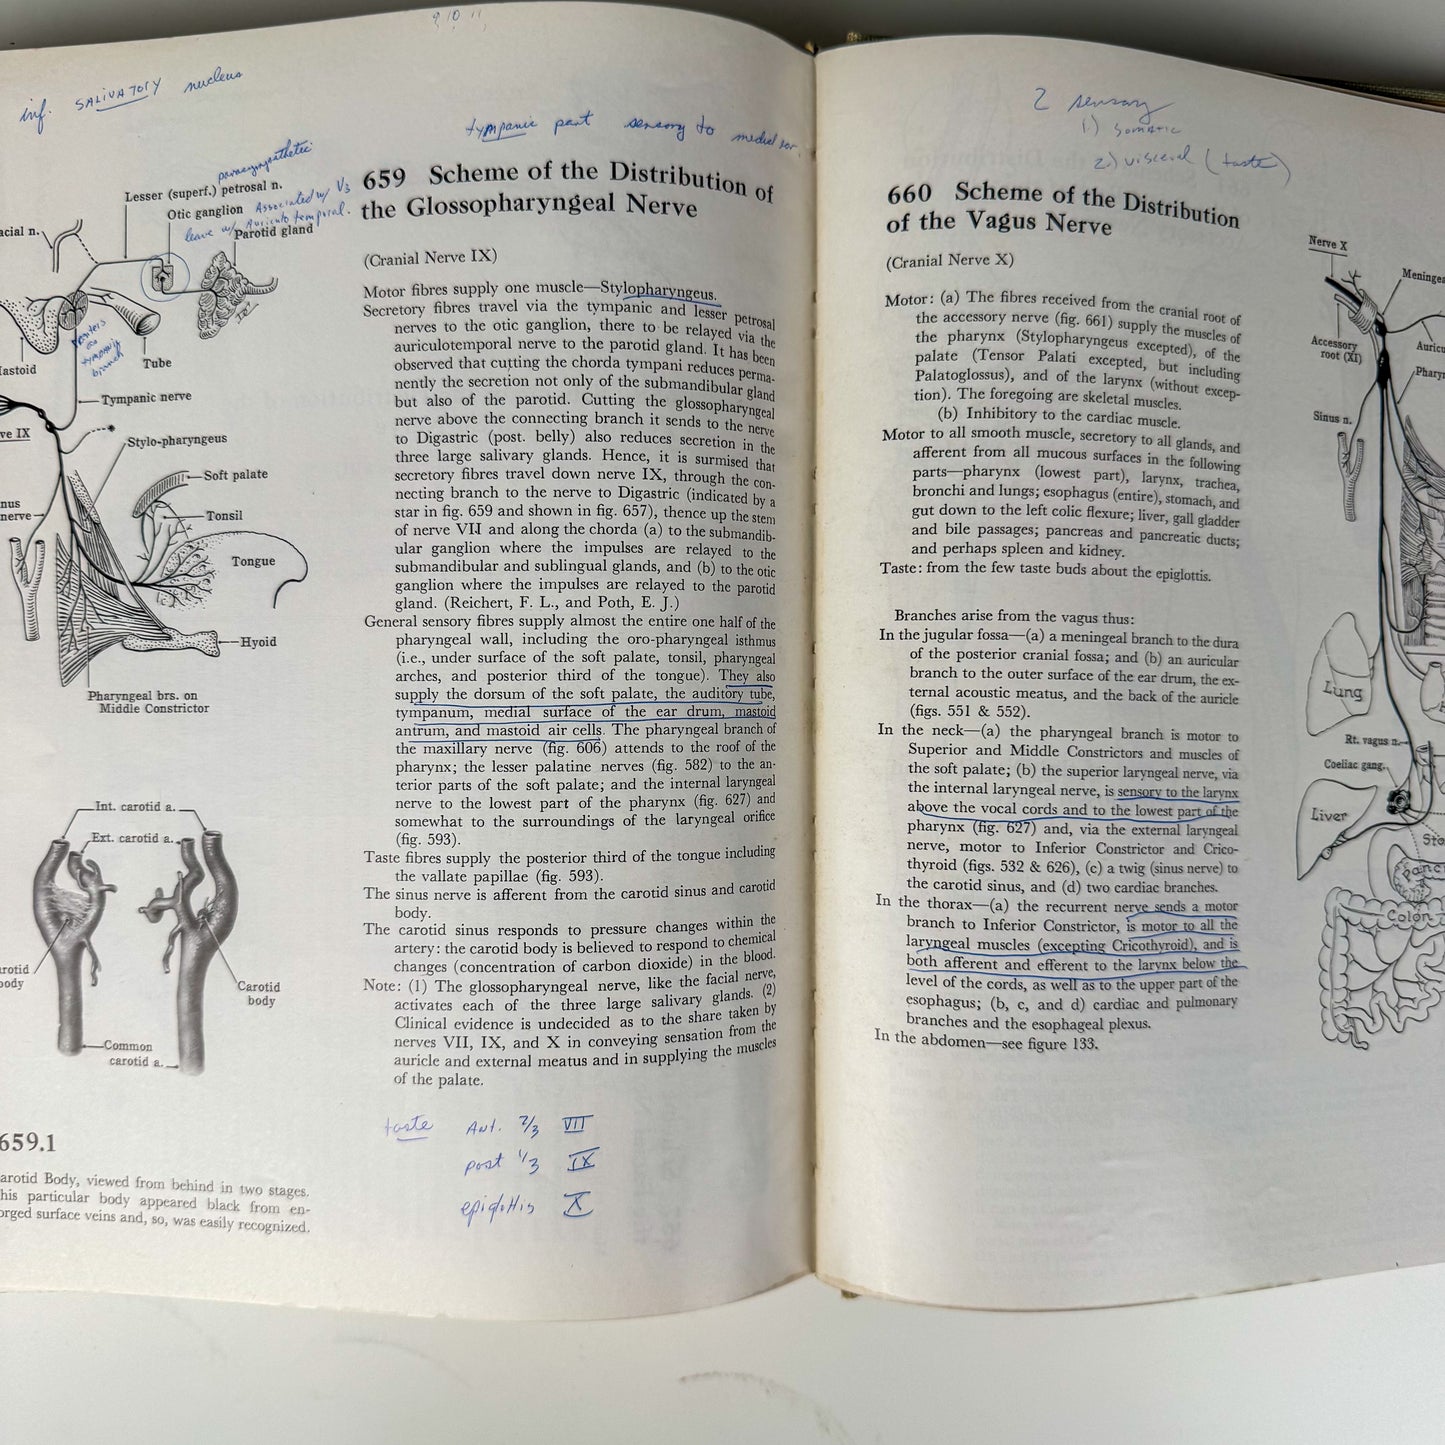 9 10 11
inf. SALIVATORY nucleus
parasympathetic
Lesser (superf.) petrosal n.
Otic ganglion Associated w/ V3
leave w/ Auriculo temporal.
Parotid gland
acial n.
Mastoid
enters
as
tympanic
branch
Tube
Tympanic nerve
ve IX
Stylo-pharyngeus
Soft palate
nus
nerve
Tonsil
Tongue
Hyoid
Pharyngeal brs. on
Middle Constrictor
Int. carotid a.
Ext. carotid a.
arotid
body
Carotid
body
Common
carotid a.
659.1
arotid Body, viewed from behind in two stages.
his particular body appeared black from en-
orged surface veins and, so, was easily recognized.
tympanic part sensory to medial
659 Scheme of the Distribution of
the Glossopharyngeal Nerve
(Cranial Nerve IX)
Motor fibres supply one muscle—Stylopharyngeus.
Secretory fibres travel via the tympanic and lesser petrosal
nerves to the otic ganglion, there to be relayed via the
auriculotemporal nerve to the parotid gland. It has been
observed that cutting the chorda tympani reduces perma-
nently the secretion not only of the submandibular gland
but also of the parotid. Cutting the glossopharyngeal
nerve above the connecting branch it sends to the nerve
to Digastric (post. belly) also reduces secretion in the
three large salivary glands. Hence, it is surmised that
secretory fibres travel down nerve IX, through the con-
necting branch to the nerve to Digastric (indicated by a
star in fig. 659 and shown in fig. 657), thence up the stem
of nerve VII and along the chorda (a) to the submandib-
ular ganglion where the impulses are relayed to the
submandibular and sublingual glands, and (b) to the otic
ganglion where the impulses are relayed to the parotid
gland. (Reichert, F. L., and Poth, E. J.)
General sensory fibres supply almost the entire one half of the
pharyngeal wall, including the oro-pharyngeal isthmus
(i.e., under surface of the soft palate, tonsil, pharyngeal
arches, and posterior third of the tongue). They also
supply the dorsum of the soft palate, the auditory tube,
tympanum, medial surface of the ear drum, mastoid
antrum, and mastoid air cells. The pharyngeal branch of
the maxillary nerve (fig. 606) attends to the roof of the
pharynx; the lesser palatine nerves (fig. 582) to the an-
terior parts of the soft palate; and the internal laryngeal
nerve to the lowest part of the pharynx (fig. 627) and
somewhat to the surroundings of the laryngeal orifice
(fig. 593).
Taste fibres supply the posterior third of the tongue including
the vallate papillae (fig. 593).
The sinus nerve is afferent from the carotid sinus and carotid
body.
The carotid sinus responds to pressure changes within the
artery: the carotid body is believed to respond to chemical
changes (concentration of carbon dioxide) in the blood.
Note: (1) The glossopharyngeal nerve, like the facial nerve,
activates each of the three large salivary glands. (2)
Clinical evidence is undecided as to the share taken by
nerves VII, IX, and X in conveying sensation from the
auricle and external meatus and in supplying the muscles
of the palate.
taste Ant. 2/3 VII
post 1/3 IX
epiglottis X
2 sensory
1) somatic
2) visceral (taste)
660 Scheme of the Distribution
of the Vagus Nerve
(Cranial Nerve X)
Motor: (a) The fibres received from the cranial root of
the accessory nerve (fig. 661) supply the muscles of
the pharynx (Stylopharyngeus excepted), of the
palate (Tensor Palati excepted, but including
Palatoglossus), and of the larynx (without excep-
tion). The foregoing are skeletal muscles.
(b) Inhibitory to the cardiac muscle.
Motor to all smooth muscle, secretory to all glands, and
afferent from all mucous surfaces in the following
parts—pharynx (lowest part), larynx, trachea,
bronchi and lungs; esophagus (entire), stomach, and
gut down to the left colic flexure; liver, gall gladder
and bile passages; pancreas and pancreatic ducts;
and perhaps spleen and kidney.
Taste: from the few taste buds about the epiglottis.
Branches arise from the vagus thus:
In the jugular fossa—(a) a meningeal branch to the dura
of the posterior cranial fossa; and (b) an auricular
branch to the outer surface of the ear drum, the ex-
ternal acoustic meatus, and the back of the auricle
(figs. 551 & 552).
In the neck—(a) the pharyngeal branch is motor to
Superior and Middle Constrictors and muscles of
the soft palate; (b) the superior laryngeal nerve, via
the internal laryngeal nerve, is sensory to the larynx
above the vocal cords and to the lowest part of the
pharynx (fig. 627) and, via the external laryngeal
nerve, motor to Inferior Constrictor and Crico-
thyroid (figs. 532 & 626), (c) a twig (sinus nerve) to
the carotid sinus, and (d) two cardiac branches.
In the thorax—(a) the recurrent nerve sends a motor
branch to Inferior Constrictor, is motor to all the
laryngeal muscles (excepting Cricothyroid), and is
both afferent and efferent to the larynx below the
level of the cords, as well as to the upper part of the
esophagus; (b, c, and d) cardiac and pulmonary
branches and the esophageal plexus.
In the abdomen—see figure 133.
Nerve X
Meninge
Accessory
root (XI)
Auricu
Phary
Sinus n.
Lung
Rt. vagus n.
Coeliac gang.
Liver
Sto
Pancr
Colon